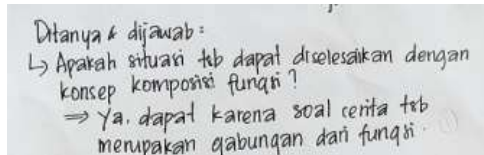 Ditanya & dijawab :
↳ Apakah situasi tsb dapat diselesaikan dengan
konsep komposisi fungsi ?
⇒ Ya, dapat karena soal cerita tsb
merupakan gabungan dari fungsi.